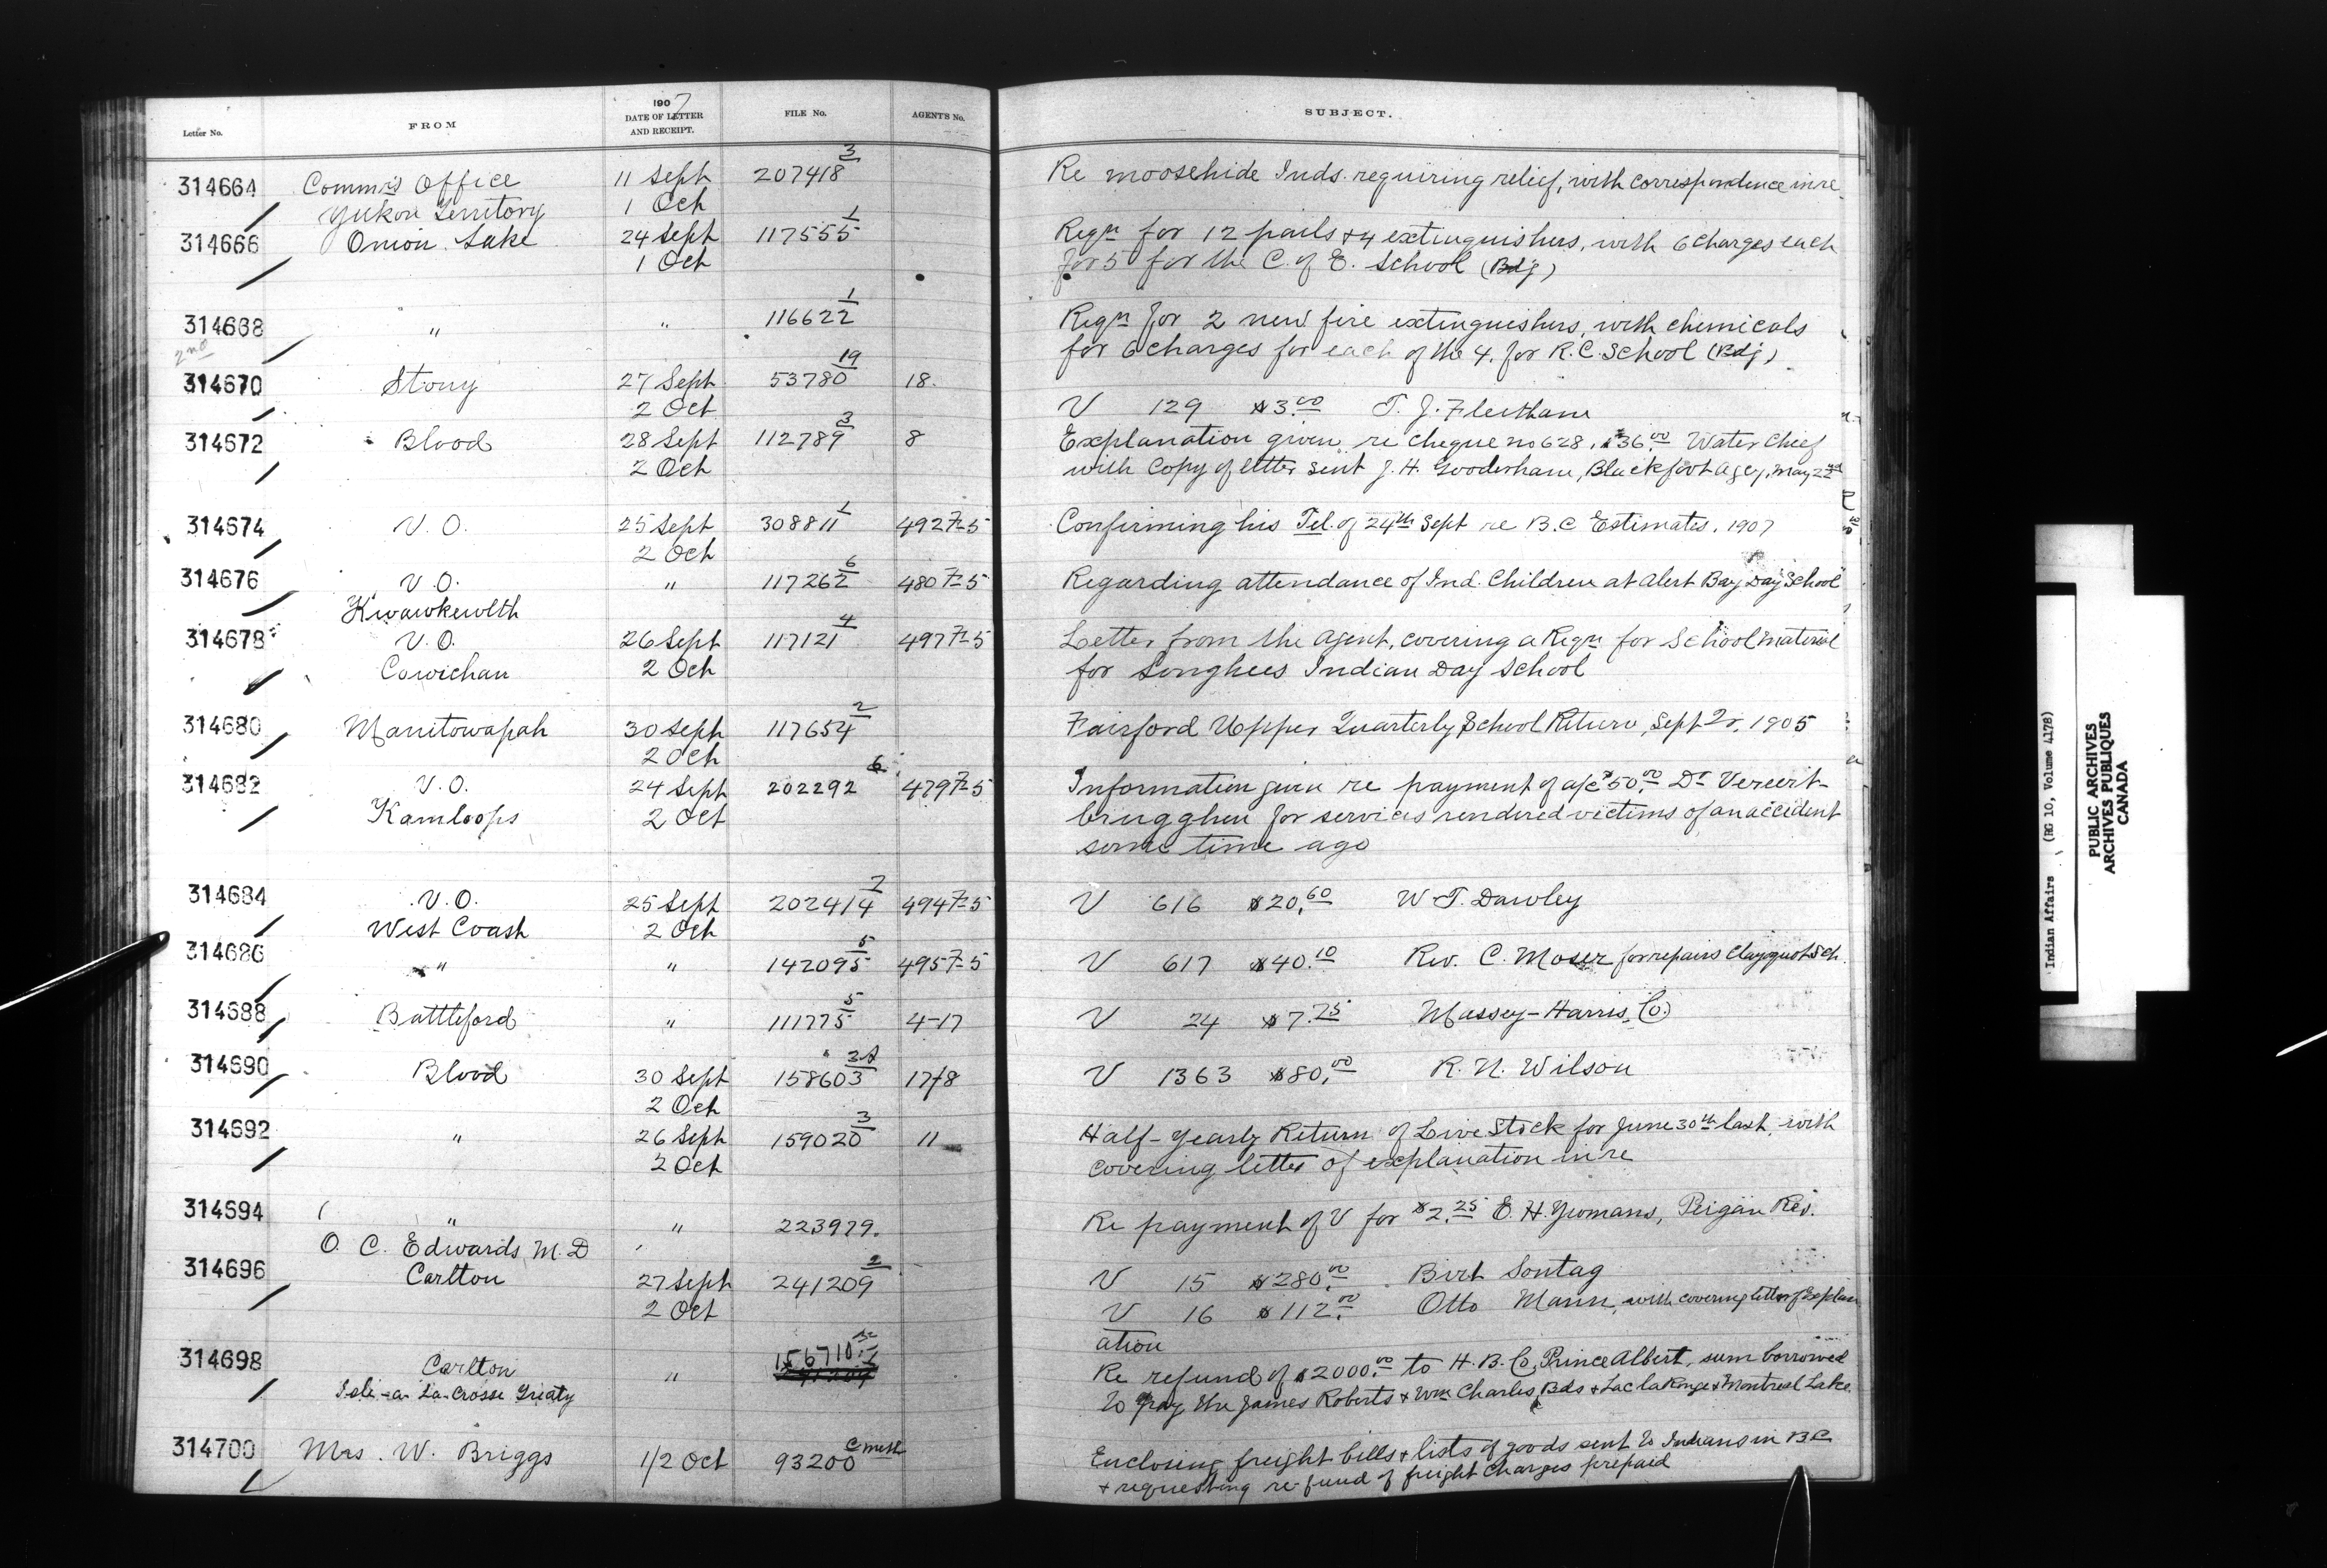 Letter No. FROM 1907 DATE OF LETTER AND RECEIPT. FILE No. AGENTS No. SUBJECT.
314664 Commrs Office 11 Sept 207418 3 Re moosehide Inds. requiring relief, with correspondence in re
Yukon Territory 1 Oct
314666 Onion Lake 24 Sept 117555 1 Reqn for 12 pails & 4 extinguishers, with 6 charges each
1 Oct for 5 for the C. of E. School (Bdg)
314668 " " 116622 1 Reqn for 2 new fire extinguishers, with chemicals
2nd for 6 charges for each of the 4, for R.C. School (Bdg)
314670 Stony 27 Sept 53780 19 18.
2 Oct V 129 $3.00 T. J. Fleetham
314672 Blood 28 Sept 112789 3 8 Explanation given re cheque no 628, $36.00 Water Chief
2 Oct with Copy of letter sent J. H. Gooderham, Blackfoot Agcy, May 22nd
314674 V.O. 25 Sept 308811 1 492 7-5 Confirming his Tel. of 24th Sept re B.C Estimates. 1907
2 Oct
314676 V.O. " 117262 6 480 7-5 Regarding attendance of Ind. Children at Alert Bay Day School
Kwawkewlth
314678 V.O. 26 Sept 117121 4 497 7-5 Letter from the Agent, covering a Reqn for School material
Cowichan 2 Oct for Songhees Indian Day School
314680 Manitowapah 30 Sept 117654 2 Fairford Upper Quarterly School Return, Sept Qr, 1905
2 Oct
314682 V.O. 24 Sept 202292 6 479 7-5 Information given re payment of a/c $50.00 Dr Vereert-
Kamloops 2 Oct brugghen for services rendered victims of an accident
some time ago
314684 V.O. 25 Sept 202414 2 494 7-5 V 616 $20.60 W. T. Dawley
West Coast 2 Oct
314686 " " 142095 5 495 7-5 V 617 $40.10 Rev. C. Moser for repairs Clayoquot Sch.
314688 Battleford " 111775 5 4-17 V 24 $7.25 Massey-Harris, Co.
314690 Blood 30 Sept 158603 3A 17/8 V 1363 $80.00 R. N. Wilson
2 Oct
314692 " 26 Sept 159020 3 11 Half-yearly Return of Live Stock for June 30th last, with
2 Oct covering letter of explanation in re
314694 " " 223979. Re payment of V for $2.25 E. H. Yeomans, Peigan Res.
O. C. Edwards, M.D
314696 Carlton 27 Sept 241209 2 V 15 $280.00 Bert Sontag
2 Oct V 16 $112.00 Otto Mann, with covering letter of Explan
ation
314698 Carlton " 156710 Re refund of $2000.00 to H.B. Co, Prince Albert, sum borrowed
Isle-a-La-Crosse Treaty to pay the James Roberts & Wm Charles, Bds & Lac la Ronge & Montreal Lake.
314700 Mrs. W. Briggs 1/2 Oct 93200 C meth Enclosing freight bills & lists of goods sent to Indians in B.C
& requesting re-fund of freight Charges prepaid
Indian Affairs (RG 10, Volume 4178)
PUBLIC ARCHIVES
ARCHIVES PUBLIQUES
CANADA